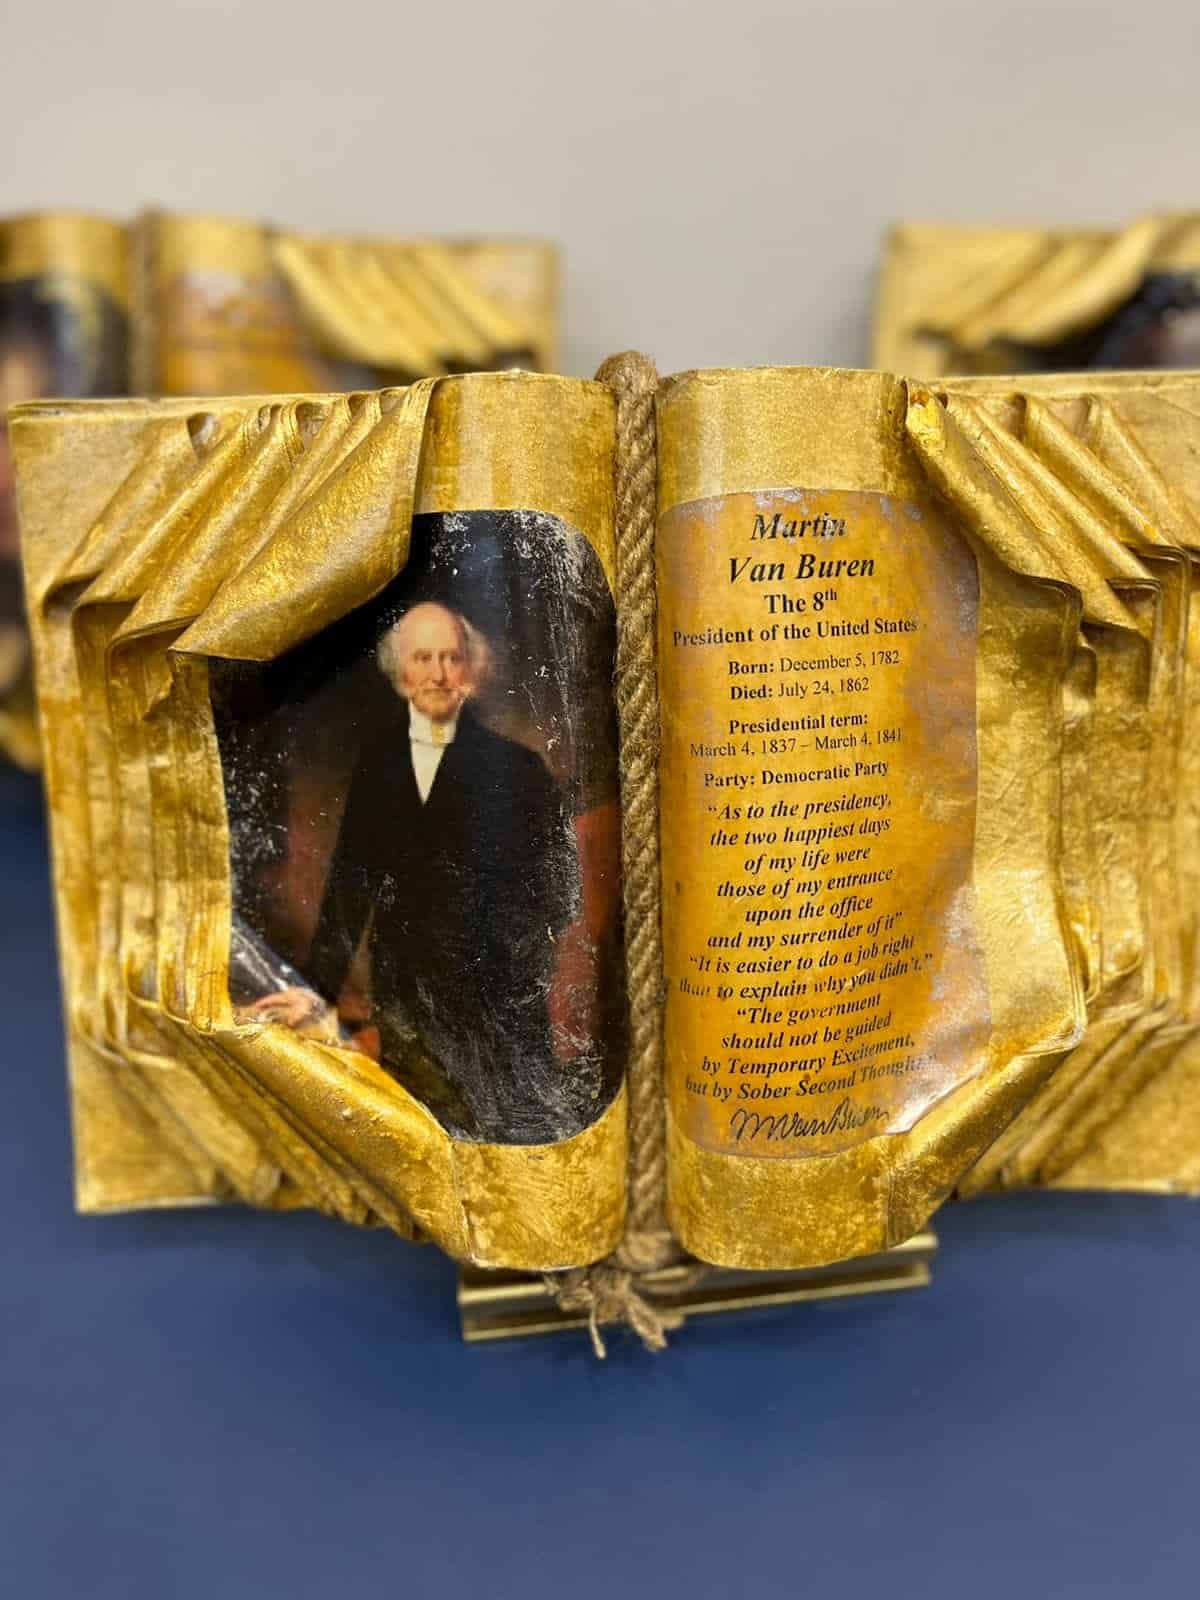 Martin
Van Buren
The 8th
President of the United States
Born: December 5, 1782
Died: July 24, 1862
Presidential term:
March 4, 1837 – March 4, 1841
Party: Democratic Party
"As to the presidency,
the two happiest days
of my life were
those of my entrance
upon the office
and my surrender of it"
"It is easier to do a job right
than to explain why you didn't."
"The government
should not be guided
by Temporary Excitement,
but by Sober Second Thought"
M Van Buren